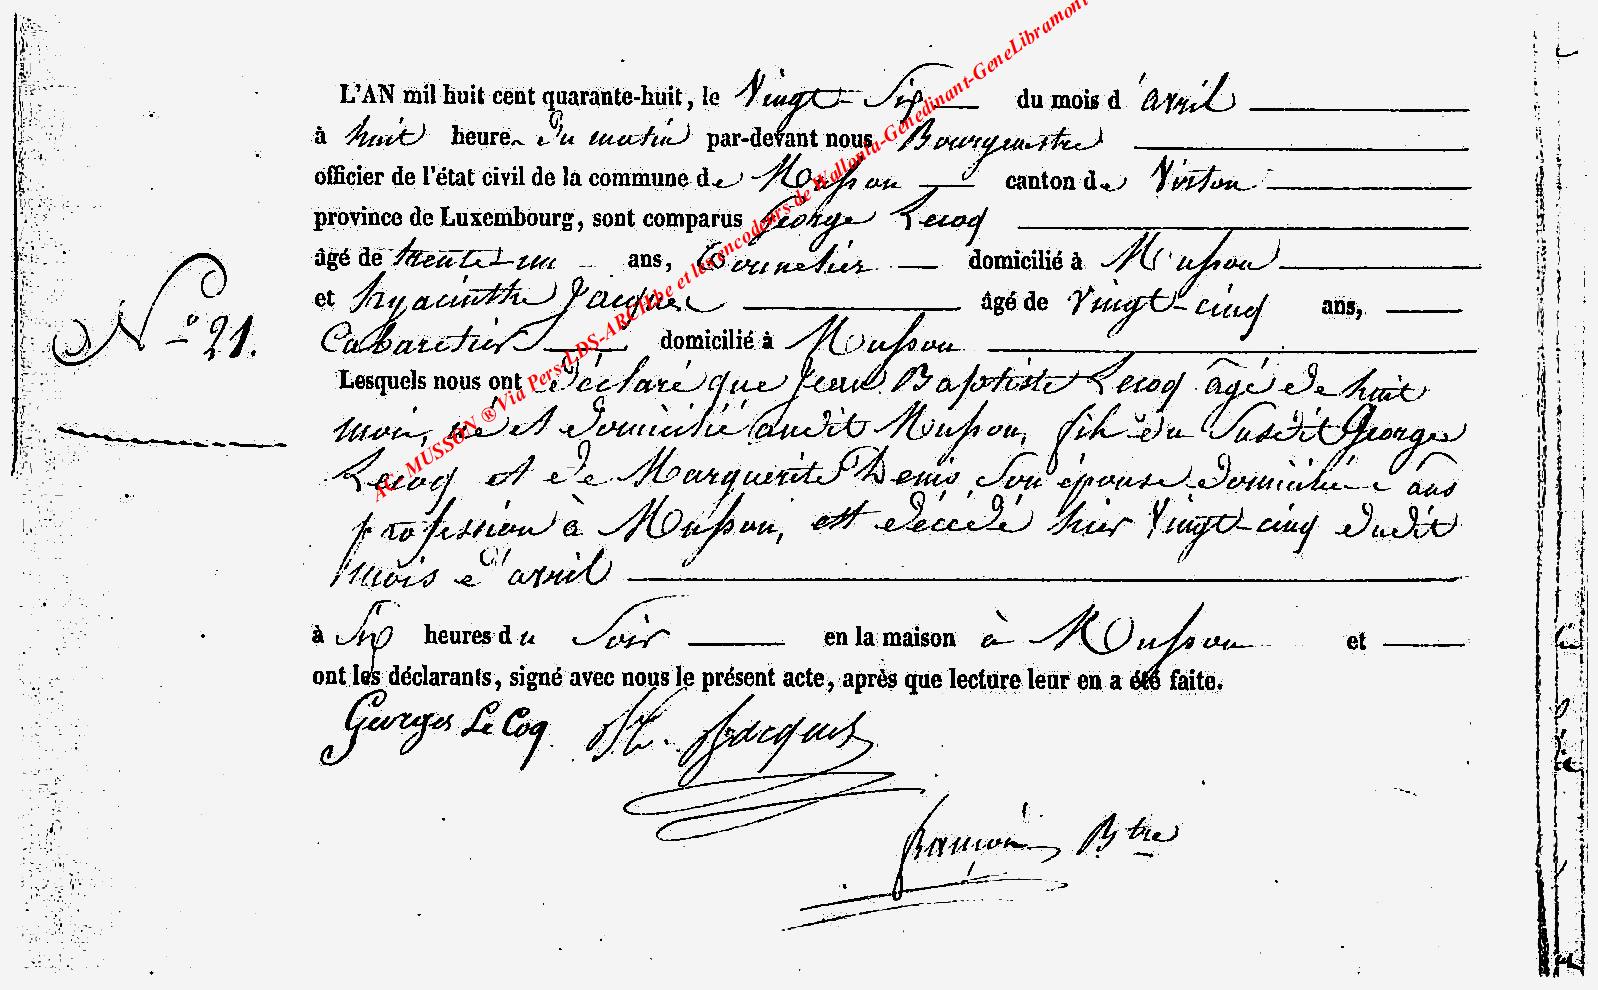 L'AN mil huit cent quarante-huit, le Vingt-Six du mois d'avril
à huit heures du matin par-devant nous Bourgmestre
officier de l'état civil de la commune de Musson canton de Virton
province de Luxembourg, sont comparus George Lecoq
âgé de trente-un ans, Tonnelier domicilié à Musson
et hyacinthe Jacques âgé de Vingt-cinq ans,
Cabaretier domicilié à Musson
N° 21.
Lesquels nous ont déclaré que Jean Baptiste Lecoq âgé de huit
mois, né et domicilié audit Musson, fils du Susdit Georges
Lecoq et de Marguerite Denis Son épouse domiciliée sans
profession à Musson, est décédé hier Vingt-cinq dudit
mois d'avril
à Six heures du Soir en la maison à Musson et
ont les déclarants, signé avec nous le présent acte, après que lecture leur en a été faite.
Georges Le Coq H. Jacques
Btre
AC MUSSON ® Via Pers-LDS-ARCH.be et les encodeurs de Wallonia-Genedinant-GeneLibramont